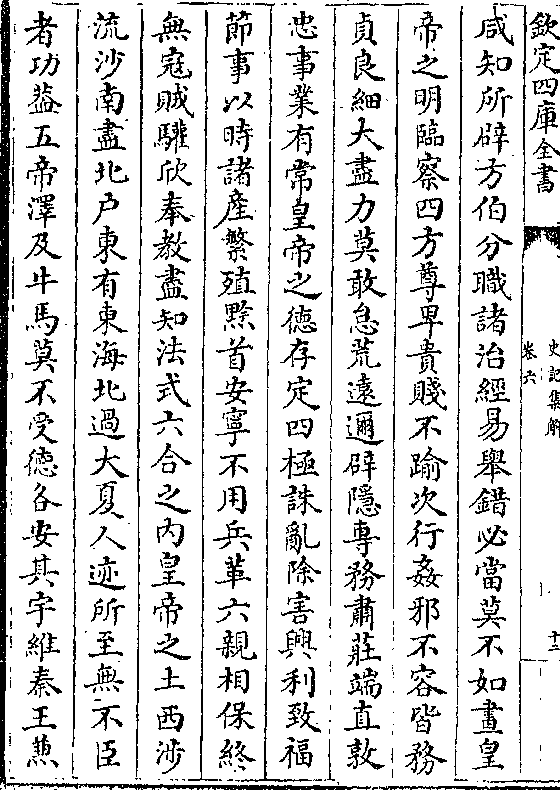 欽定四庫全書
史記集解
卷六
十三
咸知所辟方伯分職諸治經易舉錯必當莫不如畫皇
帝之明臨察四方尊卑貴賤不踰次行姦邪不容皆務
貞良細大盡力莫敢怠荒逺邇辟隱専務肅莊端直敦
忠事業有常皇帝之徳存定四極誅亂除害興利致福
節事以時諸産繁殖黔首安寧不用兵革六親相保終
無寇賊驩欣奉教盡知法式六合之内皇帝之土西涉
流沙南盡北户東有東海北過大夏人迹所至無不臣
者功葢五帝澤及牛馬莫不受徳各安其宇維秦王兼